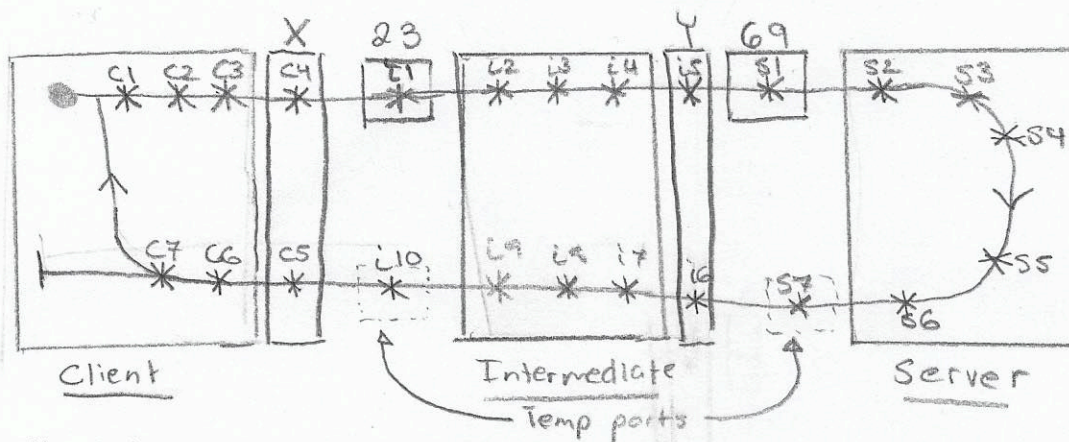 X 23 Y 69
C1 C2 C3 C4 i1 i2 i3 i4 i5 S1 S2 S3
S4
C7 C6 C5 i10 i9 i8 i7 i6 S7 S6 S5
Client Intermediate Server
Temp ports